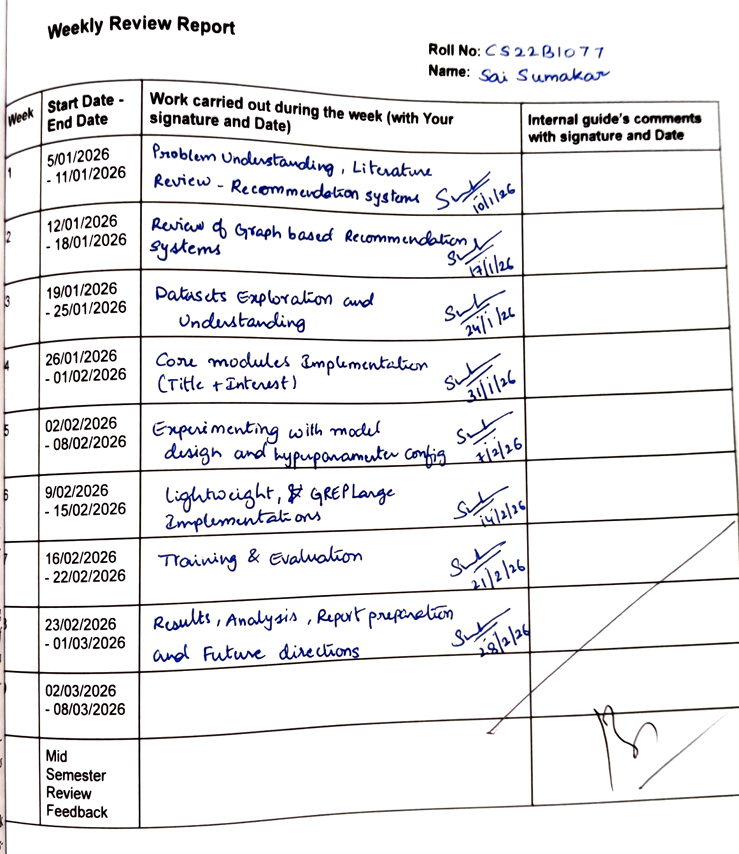 Weekly Review Report
Roll No: CS22B1077
Name: Sai Sumakar
Week
Start Date -
End Date
Work carried out during the week (with Your
signature and Date)
Internal guide's comments
with signature and Date
1
5/01/2026
- 11/01/2026
Problem Understanding, Literature
Review - Recommendation systems
10/1/26
2
12/01/2026
- 18/01/2026
Review of Graph based Recommendation
systems
17/1/26
3
19/01/2026
- 25/01/2026
Datasets Exploration and
Understanding
24/1/26
4
26/01/2026
- 01/02/2026
Core modules Implementation
(Title + Interest)
31/1/26
5
02/02/2026
- 08/02/2026
Experimenting with model
design and hyperparameter config
7/2/26
6
9/02/2026
- 15/02/2026
Lightweight, & GREPLarge
Implementations
14/2/26
7
16/02/2026
- 22/02/2026
Training & Evaluation
21/2/26
23/02/2026
- 01/03/2026
Results, Analysis, Report preparation
and Future directions
28/2/26
02/03/2026
- 08/03/2026
Mid
Semester
Review
Feedback